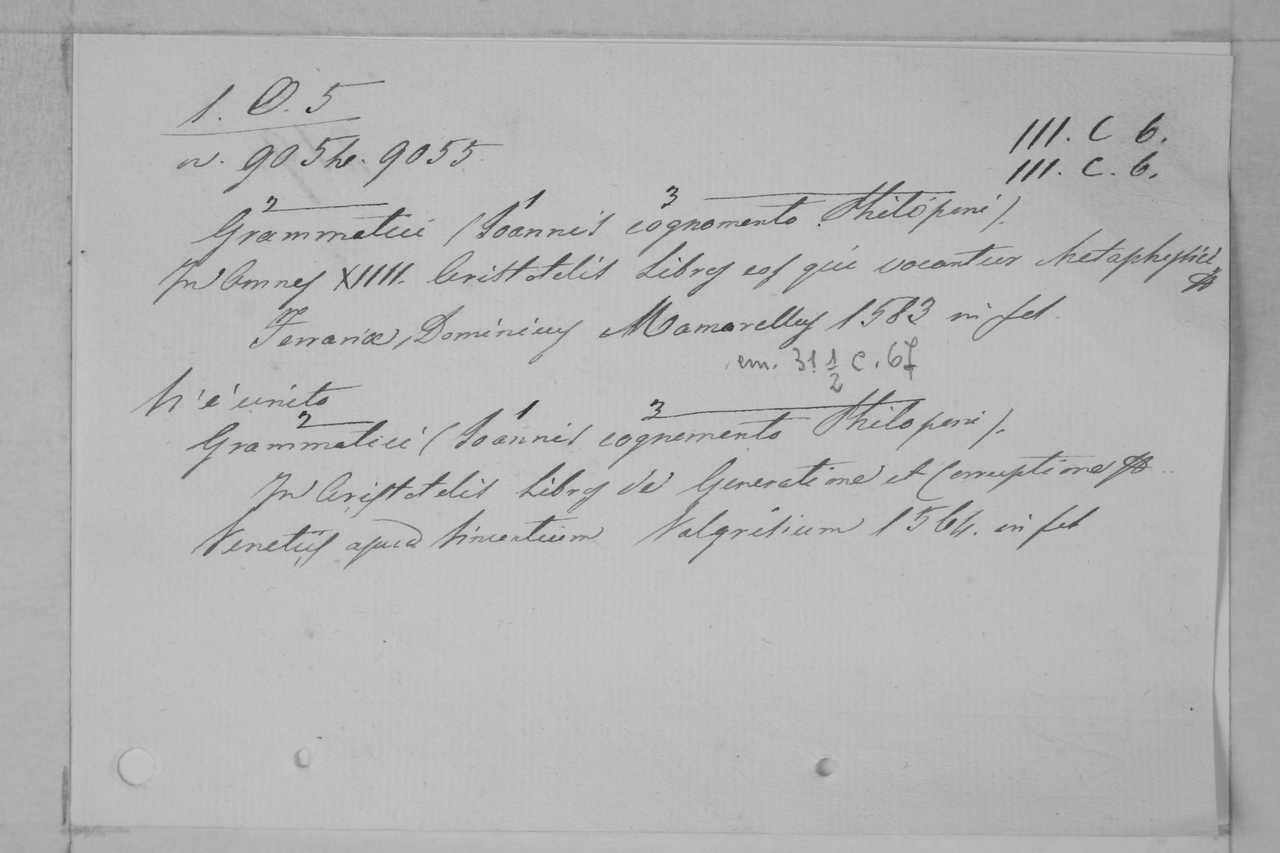 1. O. 5
III. C 6.
n. 9054. 9055
III. C. 6.
2 1 3
Grammatici (Joannis cognomento Philóponi).
In Omnes XIIII. Aristotelis Libros eos qui vocantur Metaphysici
Ferrariæ, Dominicus Mamarellus 1583 in fol.
cm. 31 1/2 c. 67
V'é unito
2 1 3
Grammatici (Joannis cognomento Philoponi).
In Aristotelis Libros de Generatione et Corruptione
Venetiis apud Vincentium Valgrisium 1564. in fol